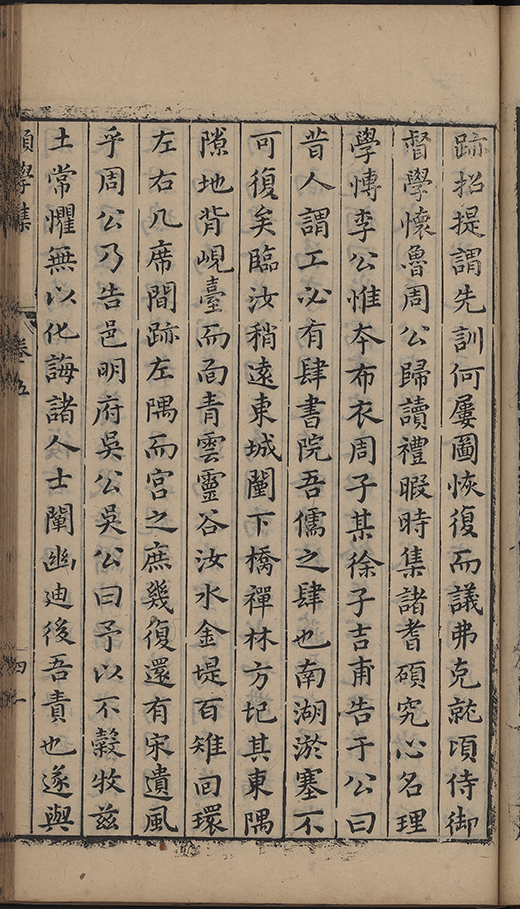 跡招提謂先訓何屢圖恢復而議弗克就頃侍御
督學懷魯周公歸讀禮暇時集諸耆碩究心名理
學愽李公惟夲布衣周子某徐子吉甫告于公曰
昔人謂工必有肆書院吾儒之肆也南湖淤塞不
可復矣臨汝稍遠東城闉下橋禪林方圮其東隅
隙地背峴臺而面青雲靈谷汝水金堤百雉回環
左右几席間跡左隅而宮之庶幾復還有宋遺風
乎周公乃告邑明府吳公吳公曰予以不穀牧兹
土常懼無以化誨諸人士闡幽迪後吾責也遂與
學集 卷五 四一